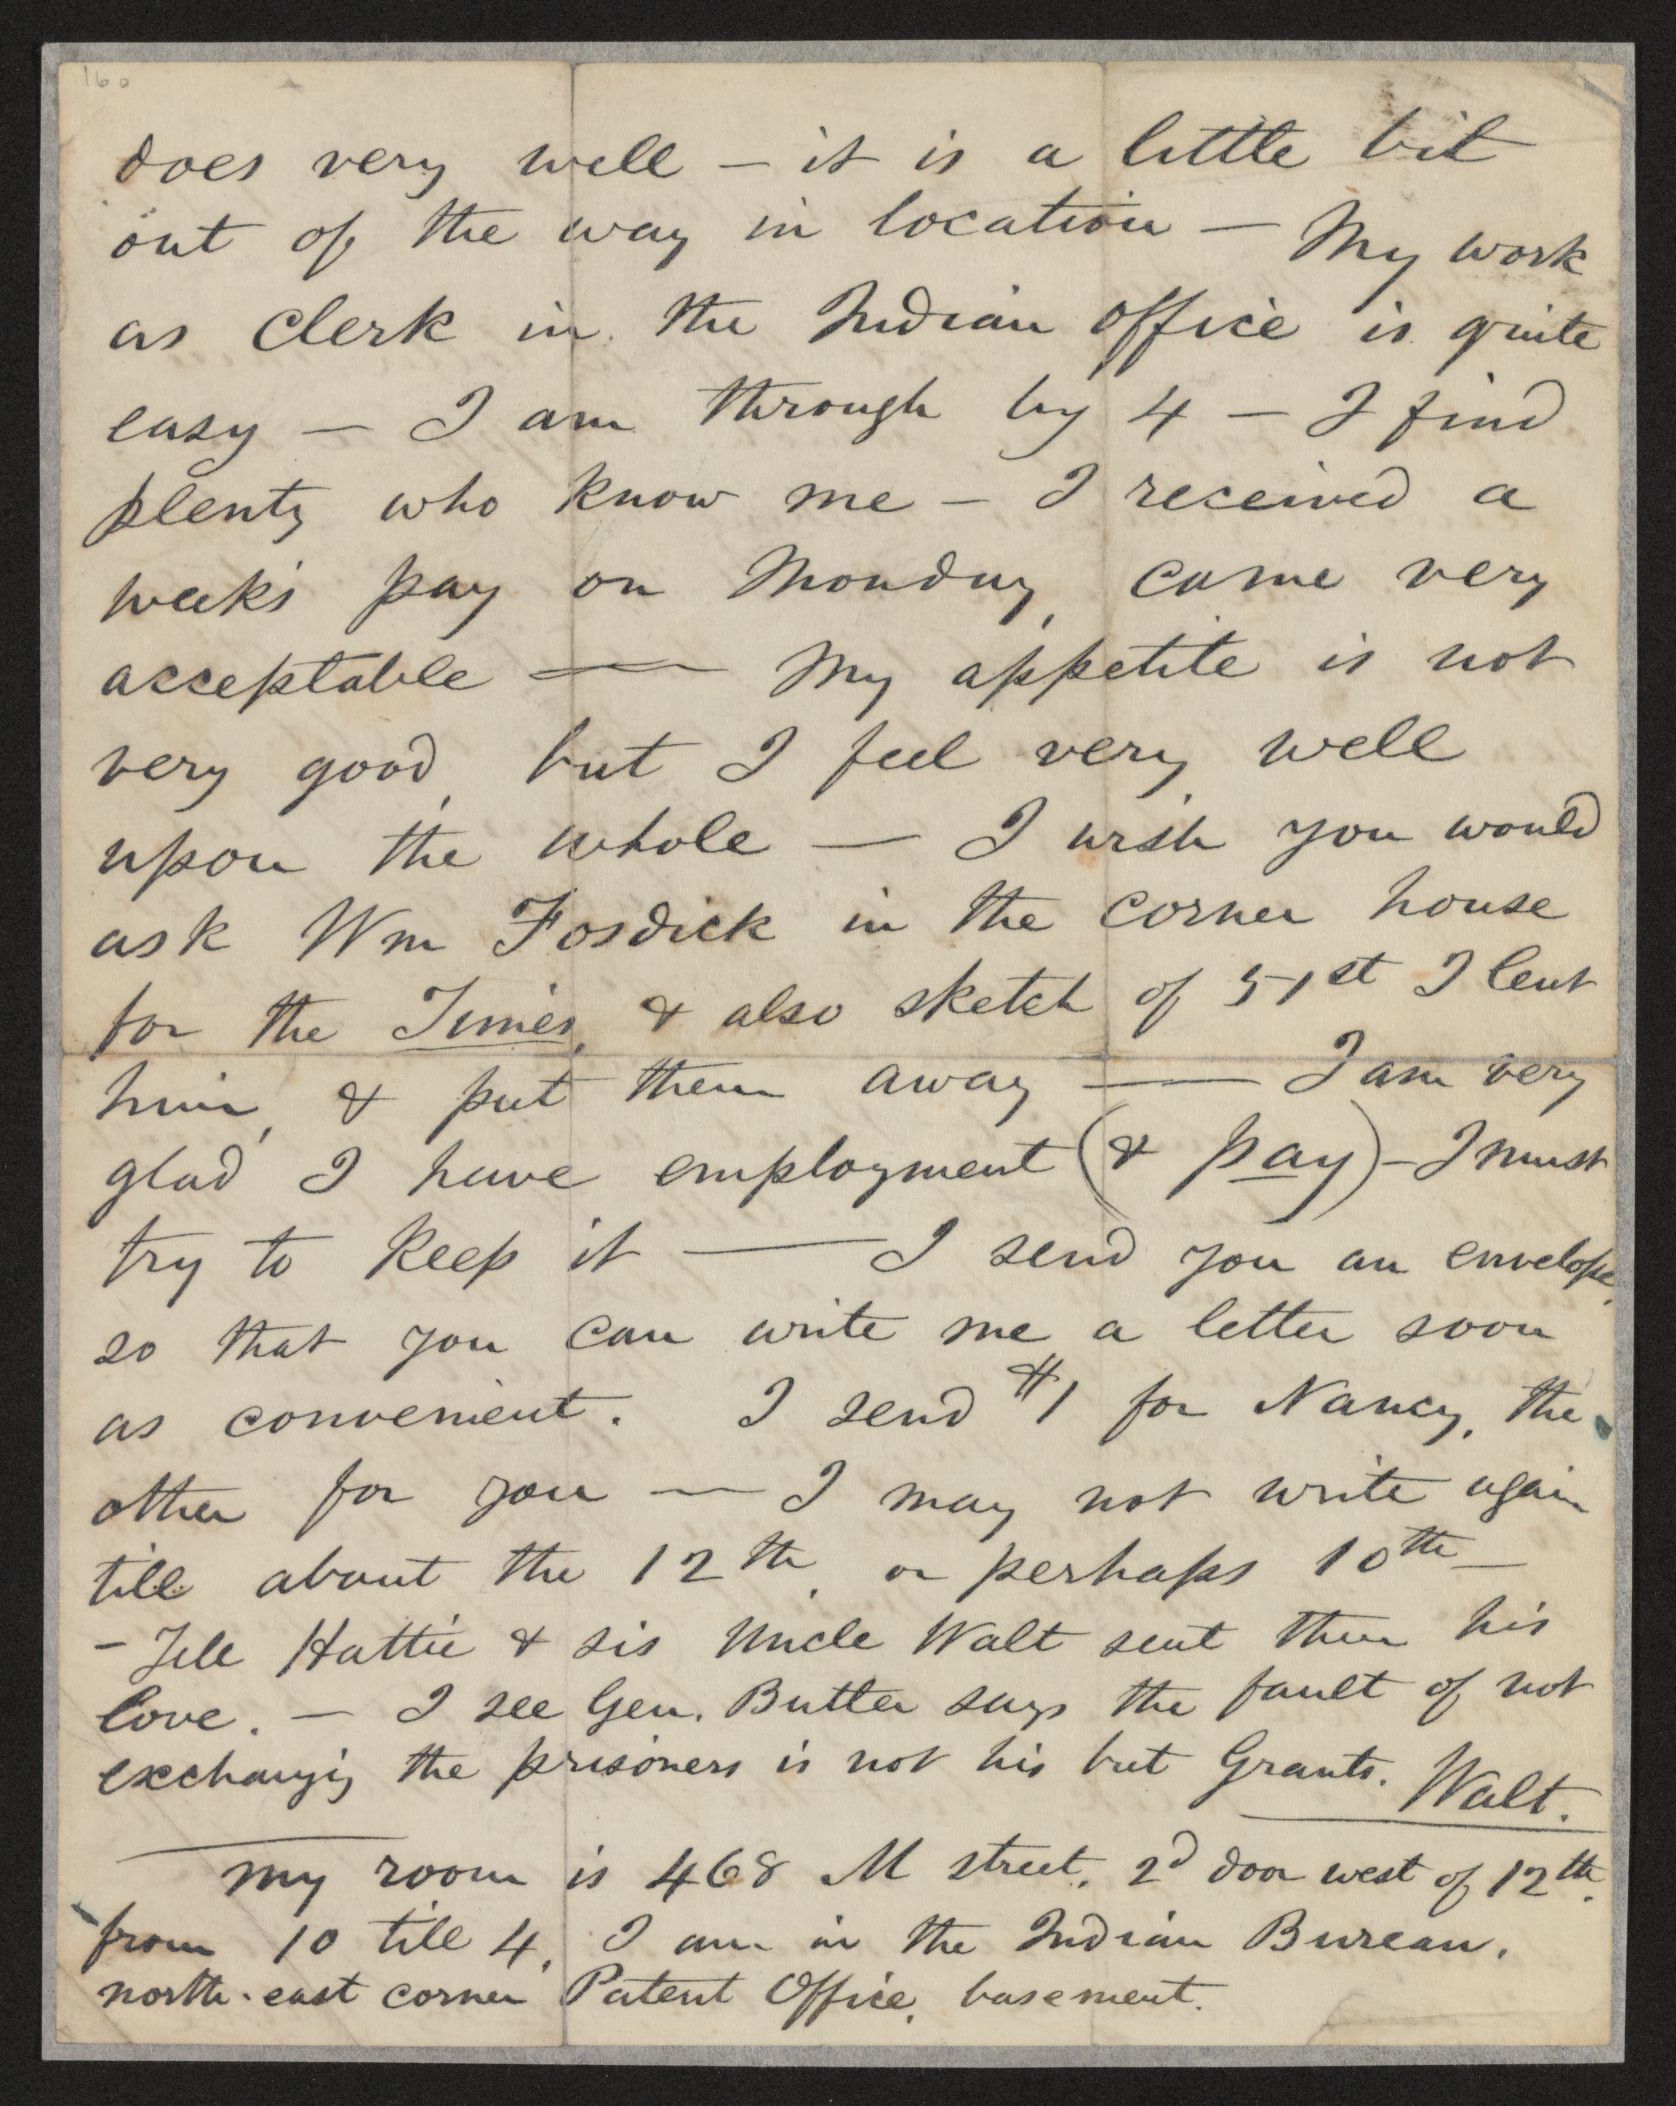 160
does very well – it is a little bit
out of the way in location – My work
as clerk in the Indian office is quite
easy – I am through by 4 – I find
plenty who know me – I received a
week's pay on Monday, came very
acceptable — My appetite is not
very good, but I feel very well
upon the whole – I wish you would
ask Wm Fosdick in the corner house
for the Times, & also sketch of 51st I lent
him, & put them away — I am very
glad I have employment (& pay) – I must
try to keep it — I send you an envelope,
so that you can write me a letter soon
as convenient. I send $1 for Nancy, the
other for you — I may not write again
till about the 12th, or perhaps 10th –
– Tell Hattie & sis Uncle Walt sent them his
love. – I see Gen. Butler says the fault of not
exchanging the prisoners is not his but Grants. Walt.
my room is 468 M street, 2d door west of 12th.
from 10 till 4, I am in the Indian Bureau,
north-east corner Patent Office, basement.